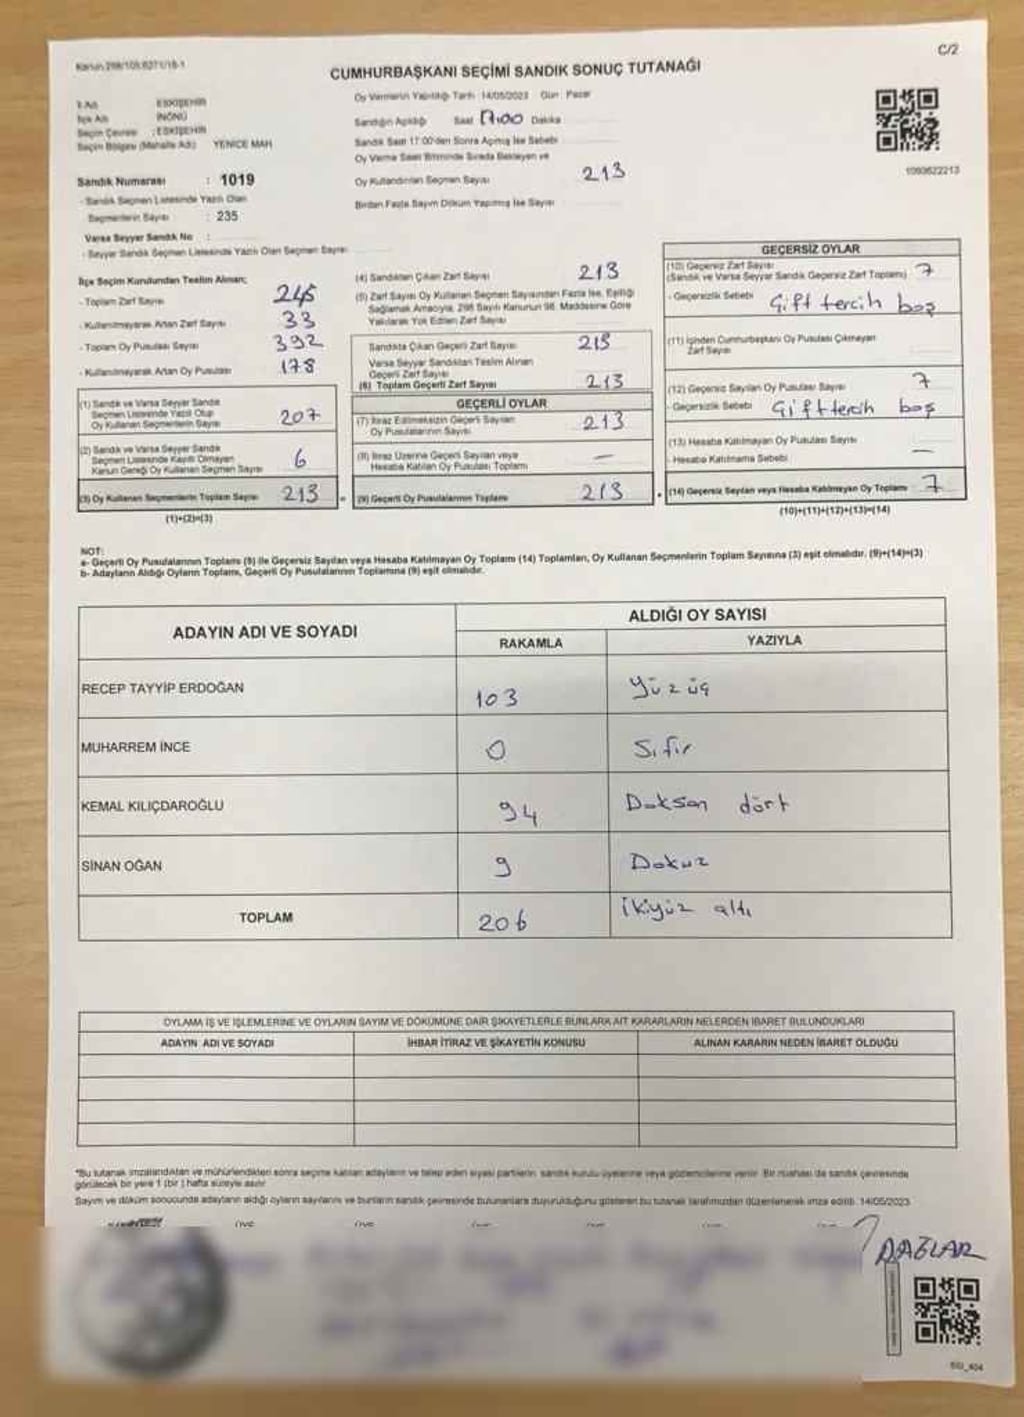 Kanun 298/105;6271/18-1
C/2
CUMHURBAŞKANI SEÇİMİ SANDIK SONUÇ TUTANAĞI
İl Adı ESKİŞEHİR
İlçe Adı İNÖNÜ
Seçim Çevresi : ESKİŞEHİR
Seçim Bölgesi (Mahalle Adı) YENİCE MAH
Sandık Numarası : 1019
- Sandık Seçmen Listesinde Yazılı Olan
Seçmenlerin Sayısı : 235
Varsa Seyyar Sandık No :
- Seyyar Sandık Seçmen Listesinde Yazılı Olan Seçmen Sayısı
Oy Vermenin Yapıldığı Tarih 14/05/2023 Gün: Pazar
Sandığın Açıldığı Saat 17:00 Dakika
Sandık Saat 17:00'den Sonra Açılmış İse Sebebi
Oy Verme Saati Bitiminde Sırada Bekleyen ve
Oy Kullandırılan Seçmen Sayısı 213
Birden Fazla Sayım Döküm Yapılmış İse Sayısı
1093622213
İlçe Seçim Kurulundan Teslim Alınan;
- Toplam Zarf Sayısı 245
- Kullanılmayarak Artan Zarf Sayısı 33
- Toplam Oy Pusulası Sayısı 392
- Kullanılmayarak Artan Oy Pusulası 178
(1) Sandık ve Varsa Seyyar Sandık
Seçmen Listesinde Yazılı Olup
Oy Kullanan Seçmenlerin Sayısı 207
(2) Sandık ve Varsa Seyyar Sandık
Seçmen Listesinde Kayıtlı Olmayan
Kanun Gereği Oy Kullanan Seçmen Sayısı 6
(3) Oy Kullanan Seçmenlerin Toplam Sayısı 213
(1)+(2)=(3)
(4) Sandıktan Çıkan Zarf Sayısı 213
(5) Zarf Sayısı Oy Kullanan Seçmen Sayısından Fazla İse, Eşitliği
Sağlamak Amacıyla, 298 Sayılı Kanunun 98. Maddesine Göre
Yakılarak Yok Edilen Zarf Sayısı
Sandıkta Çıkan Geçerli Zarf Sayısı 213
Varsa Seyyar Sandıktan Teslim Alınan
Geçerli Zarf Sayısı
(6) Toplam Geçerli Zarf Sayısı 213
GEÇERLİ OYLAR
(7) İtiraz Edilmeksizin Geçerli Sayılan
Oy Pusulalarının Sayısı 213
(8) İtiraz Üzerine Geçerli Sayılan veya
Hesaba Katılan Oy Pusulası Toplamı —
(9) Geçerli Oy Pusulalarının Toplamı 213
GEÇERSİZ OYLAR
(10) Geçersiz Zarf Sayısı
(Sandık ve Varsa Seyyar Sandık Geçersiz Zarf Toplamı) 7
- Geçersizlik Sebebi Çift tercih boş
(11) İçinden Cumhurbaşkanı Oy Pusulası Çıkmayan
Zarf Sayısı
(12) Geçersiz Sayılan Oy Pusulası Sayısı 7
- Geçersizlik Sebebi Çift tercih boş
(13) Hesaba Katılmayan Oy Pusulası Sayısı
- Hesaba Katılmama Sebebi —
(14) Geçersiz Sayılan veya Hesaba Katılmayan Oy Toplamı 7
(10)+(11)+(12)+(13)=(14)
NOT:
a- Geçerli Oy Pusulalarının Toplamı (9) ile Geçersiz Sayılan veya Hesaba Katılmayan Oy Toplamı (14) Toplamları, Oy Kullanan Seçmenlerin Toplam Sayısına (3) eşit olmalıdır. (9)+(14)=(3)
b- Adayların Aldığı Oyların Toplamı, Geçerli Oy Pusulalarının Toplamına (9) eşit olmalıdır.
ADAYIN ADI VE SOYADI ALDIĞI OY SAYISI
RAKAMLA YAZIYLA
RECEP TAYYİP ERDOĞAN 103 Yüz üç
MUHARREM İNCE 0 Sıfır
KEMAL KILIÇDAROĞLU 94 Doksan dört
SİNAN OĞAN 9 Dokuz
TOPLAM 206 İkiyüz altı
OYLAMA İŞ VE İŞLEMLERİNE VE OYLARIN SAYIM VE DÖKÜMÜNE DAİR ŞİKAYETLERLE BUNLARA AİT KARARLARIN NELERDEN İBARET BULUNDUKLARI
ADAYIN ADI VE SOYADI İHBAR İTİRAZ VE ŞİKAYETİN KONUSU ALINAN KARARIN NEDEN İBARET OLDUĞU
*Bu tutanak imzalandıktan ve mühürlendikten sonra seçime katılan adayların ve talep eden siyasi partilerin sandık kurulu üyelerine veya gözlemcilerine verilir. Bir nüshası da sandık çevresinde
görülecek bir yere 1 (bir) hafta süreyle asılır.
Sayım ve döküm sonucunda adayların aldığı oyların sayılarını ve bunların sandık çevresinde bulunanlara duyurulduğunu gösteren bu tutanak tarafımızdan düzenlenerek imza edildi. 14/05/2023
DAĞLAR